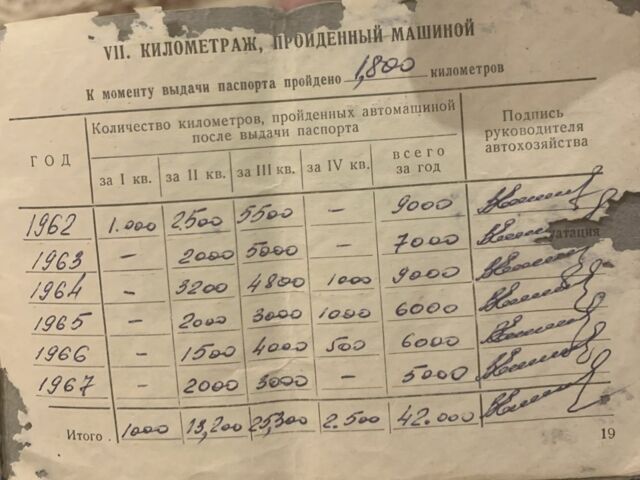 VII. КИЛОМЕТРАЖ, ПРОЙДЕННЫЙ МАШИНОЙ
К моменту выдачи паспорта пройдено 1,800 километров
ГОД
Количество километров, пройденных автомашиной
после выдачи паспорта
Подпись
руководителя
автохозяйства
за I кв. за II кв. за III кв. за IV кв. всего
за год
1962 1.000 2500 5500 – 9000
1963 – 2000 5000 – 7000
атация
1964 – 3200 4800 1000 9000
1965 – 2000 3000 1000 6000
1966 – 1500 4000 500 6000
1967 – 2000 3000 – 5000
Итого 1000 13,200 25,300 2.500 42.000
19